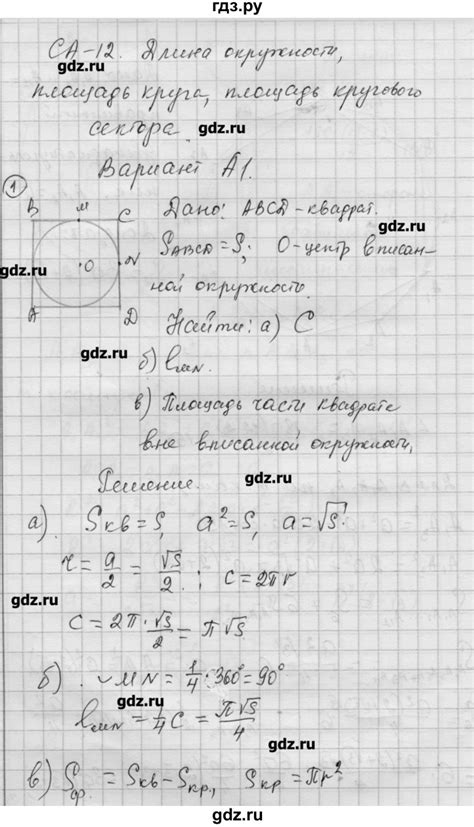 гдз.ру
СА-12. Длина окружности,
gdz.ru
площадь круга, площадь кругового
сектора gdz.ru
Вариант А1.
1
B M C Дано: ABCD - квадрат.
SABCD = S; O - центр вписан-
O N
gdz.ru
ной окружности.
A D Найти: а) C
gdz.ru
б) lMN.
gdz.ru
в) Площадь части квадрата
вне вписанной окружности,
Решение. gdz.ru
а). Sкв = S, a² = S, a = √S
r = a/2 = √S/2; C = 2πr
gdz.ru gdz.ru
C = 2π · √S/2 = π√S
б). ∪MN = 1/4 · 360° = 90°
gdz.ru
lMN = 1/4 C = π√S/4
gdz.ru
в) Sф. = Sкв - Sкр, Sкр = πr²
gdz.ru